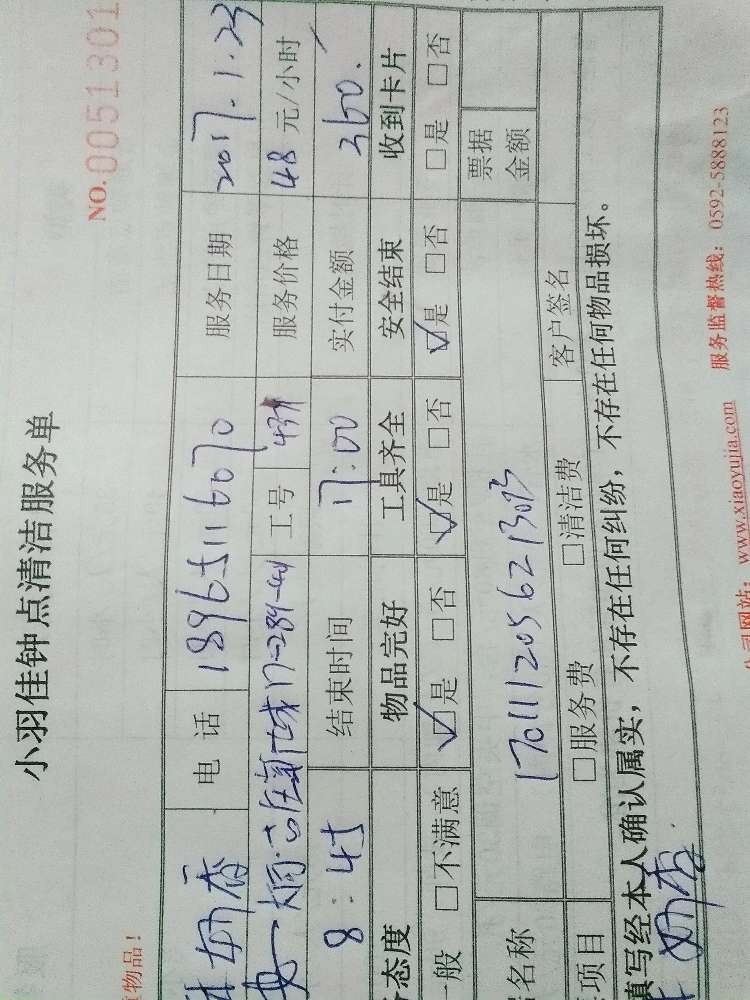 小羽佳钟点清洁服务单
NO.0051301
物品!
奶香 电话 18965116070 服务日期 2017.1.23
工号 服务价格 48元/小时
8:45 结束时间 17:00 实付金额 360.
态度 物品完好 工具齐全 安全结束 收到卡片
一般 □不满意 ☑是 □否 ☑是 □否 ☑是 □否 □是 □否
名称 票据金额
项目 □服务费 □清洁费 客户签名
填写经本人确认属实,不存在任何纠纷,不存在任何物品损坏。
奶香
公司网站:www.xiaoyujia.com 服务监督热线:0592-5888123